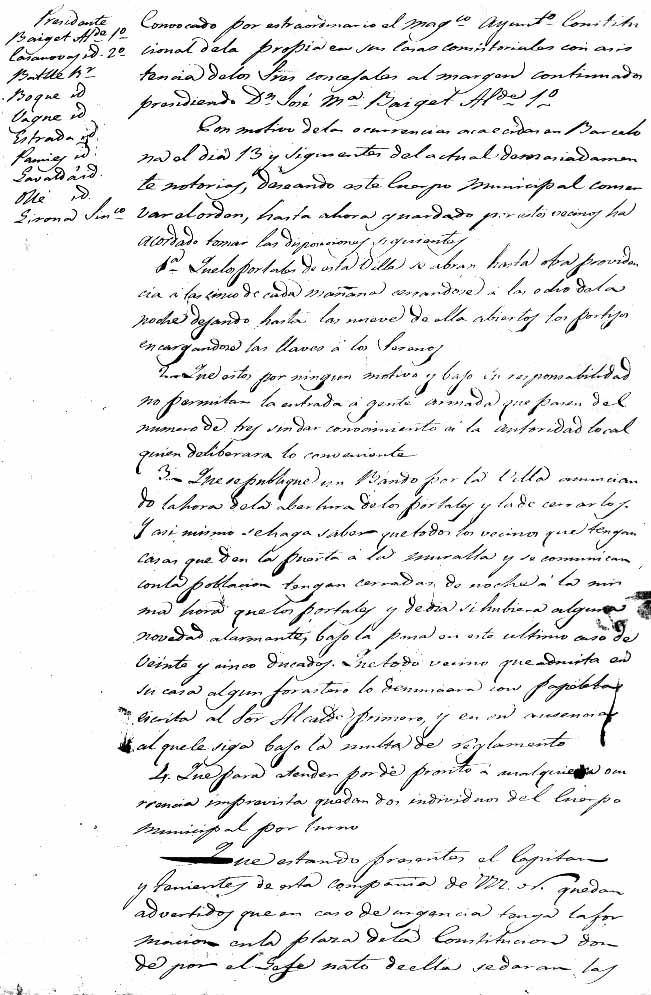 Presidente
Baiget Alde 1º
Casanovas id. 2º
Batlle Rr
Boque id
Vaque id
Estrada id
Pamies id
Gavaldá id.
Ollé id.
Girona Sinco
Convocado por estraordinario el magco Ayunto Constitu
cional dela propia en sus casas consistoriales con asis
tencia delos Sres concejales al margen continuados
presidiendo Dn José Mª Baiget Alde 1º
Con motivo delas ocurrencias acaecidas en Barcelo
na el dia 13 y siguientes del actual demasiadamen
te notorias, deseando este Cuerpo Municipal conser
var el orden, hasta ahora guardado por estos vecinos ha
acordado tomar las disposiciones siguientes
1ª Que los portales de esta Villa se abran hasta otra providen
cia á las cinco de cada mañana cerrandose á las ocho dela
noche dejando hasta las nueve de ella abiertos los portijos
encargandose las llaves á los Serenos
2. Que estos por ningun motivo y bajo su responsabilidad
no permitan la entrada á gente armada que pasen del
numero de tres sin dar conocimiento á la autoridad local
quien deliberara lo conveniente
3. Que se publique un Bando por la Villa anuncian
do la hora dela abertura delos portales y la de cerrarlos.
Y asi mismo se haga saber que todos los vecinos que tengan
casas que den la puerta á la muralla y se comunican
con la poblacion tengan cerradas de noche á la mis
ma hora que los portales y de dia si hubiera alguna
novedad alarmante, bajo la pena en este ultimo caso de
veinte y cinco ducados. Que todo vecino que admita en
su casa algun forastero lo denunciara con papeleta
escrita al Sor Alcalde primero, y en su ausencia
al que le siga bajo la multa de reglamento
4. Que para atender por de pronto á cualquiera ocu
rrencia imprevista quedan dos individuos del Cuerpo
Municipal por turno
Que estando presentes el Capitan
y tenientes de esta compañia de M. N. quedan
advertidos que en caso de urgencia tenga la for
macion en la plaza dela Constitucion don
de por el Gefe nato de ella se daran las